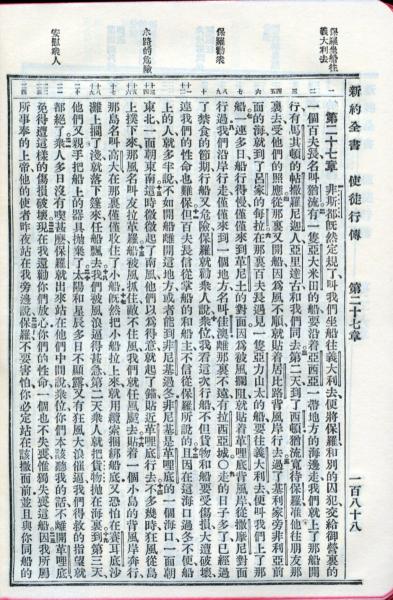 新約全書 使徒行傳 第二十七章 一百八十八
保羅坐船往
義大利去
保羅勸衆
水路的危險
安慰衆人
第二十七章 非斯都旣然定規了叫我們坐船往義大利去便將保羅和別的囚犯交給御營裏的
一個百夫長名叫猶流有一隻亞大米田的船要沿着亞西亞一帶地方的海邊走我們就上了那船開
行有馬其頓的帖撒羅尼迦人亞里達古和我們同去第二天到了西頓猶流寬待保羅准他往朋友那
裏去受他們的照應從那裏又開船因爲風不順就貼着居比路背風岸行去過了基利家旁非利亞前
面的海就到了呂家的每拉在那裏百夫長遇見一隻亞力山太的船要往義大利去便叫我們上了那
船一連多日船行得慢僅僅來到革尼土的對面因爲被風攔阻就貼着革哩底背風岸從撒摩尼對面
行過我們沿岸行走僅僅來到一個地方名叫佳澳離那裏不遠有拉西亞城〇走的日子多了已經過
了禁食的節期行船又危險保羅就勸衆人說衆位我看這次行船不但貨物和船要受傷損大遭破壞
連我們的性命也難保但百夫長信從掌船的和船主不信從保羅所說的且因在這海口過冬不便船
上的人就多半說不如開船離開這地方或者能到非尼基過冬非尼基是革哩底的一個海口一面朝
東北一面朝東南這時微微起了南風他們以爲得意就起了錨貼近革哩底行去不多幾時狂風從島
上撲下來那風名叫友拉革羅船被風抓住敵不住風我們就任風颳去貼着一個小島的背風岸奔行
那島名叫高大在那裏僅僅收住了小船旣然把小船拉上來就用纜索捆綁船底又恐怕在賽耳底沙
灘上擱了淺就落下篷來任船飄去我們被風浪逼得甚急第二天衆人就把貨物拋在海裏到第三天
他們又親手把船上的器具拋棄了太陽和星辰多日不顯露又有狂風大浪催逼我們得救的指望就
都絕了衆人多日沒有喫甚麼保羅就出來站在他們中間說衆位你們本該聽我的話不離開革哩底
免得遭這樣的傷損破壞現在我還勸你們放心你們的性命一個也不失喪惟獨失喪這船因我所屬
所事奉的上帝他的使者昨夜站在我旁邊說保羅不要害怕你必定站在該撒面前並且與你同船的